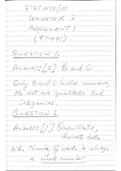 STAT1410/101
SEMESTER 2
ASSIGNMENT 1
QUESTION 1:
Answer: [2] B and C
Only B and C involve numbers,
the rest are qualitative and
categorical.
QUESTION 2:
Answer: [1] Quantitative,
discrete data
NB. Number of words is always
a whole number